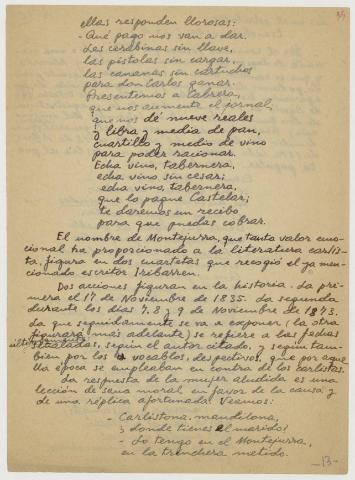 ellas responden llorosas:
- Qué pago nos van a dar.
Las carabinas sin llave,
las pistolas sin cargar,
las cananas sin cartuchos
para don Carlos ganar.
Presentemos a Cabrera,
que nos aumente el jornal,
que nos dé nueve reales
y libra y media de pan,
cuartillo y medio de vino
para poder racionar.
Echa vino, tabernera,
echa vino sin cesar;
echa vino, tabernera,
que lo pague Castelar;
te daremos un recibo
para que puedas cobrar.
El nombre de Montejurra, que tanto valor emo-
cional ha proporcionado a la literatura carlis-
ta, figura en dos cuartetas que recogió el ya men-
cionado escritor Iribarren.
Dos acciones figuran en la historia. La pri-
mera el 17 de Noviembre de 1835. La segunda
durante los días 7, 8 y 9 de Noviembre de 1873.
La que seguidamente se va a exponer (la otra
figurará más adelante) se refiere a las fechas
últimamente
señaladas, según el autor citado, y según tam-
bien por los vocablos, despectivos, que por aque-
lla época se empleaban en contra de los carlistas.
La respuesta de la mujer aludida es una
lección de sana moral en favor de la causa y
de una réplica afortunada. Veamos:
- Carlistona, mandilona,
¿donde tienes el marido?
- Lo tengo en el Montejurra,
en la trinchera metido.
-13-